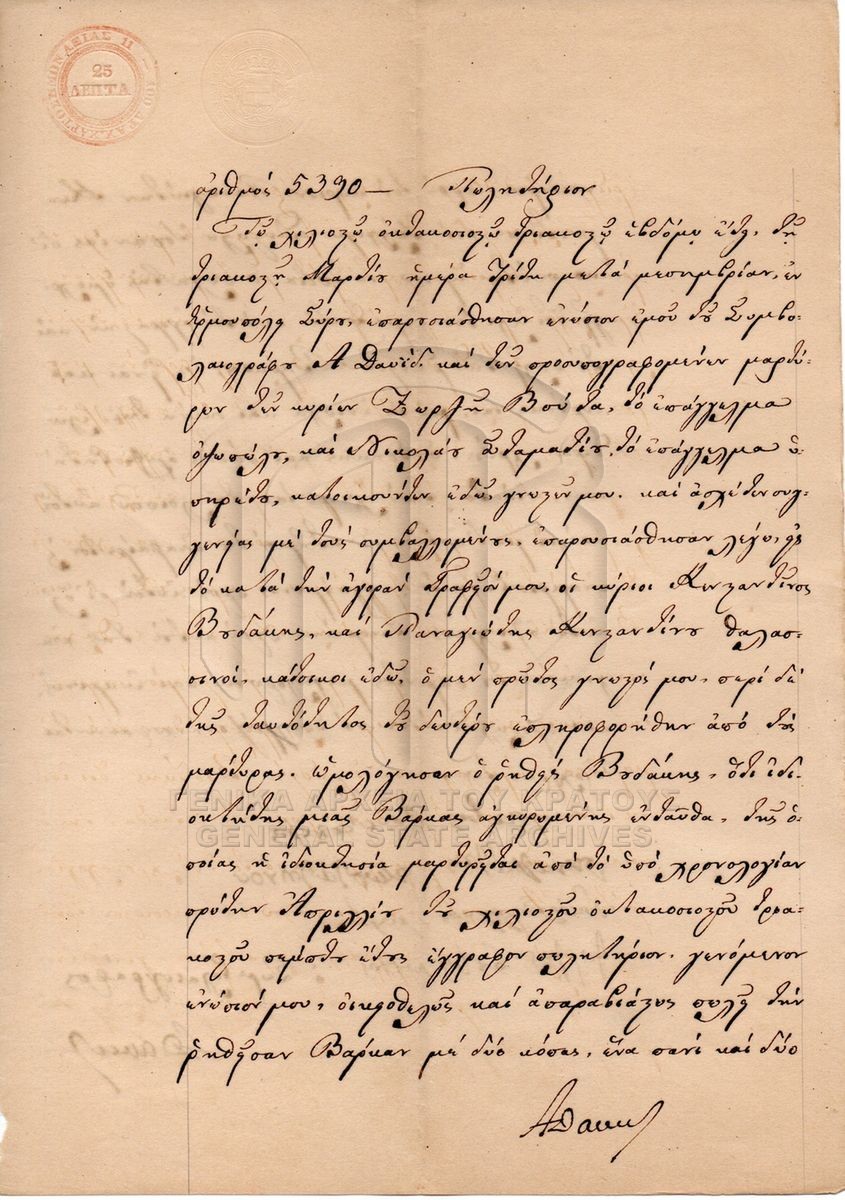 25
ΛΕΠΤΑ
ἀριθμός 5390 — Πωλητήριον
Τῷ χιλιοστῷ ὀκτακοσιοστῷ τριακοστῷ ἑβδόμῳ ἔτει, τῇ
τριακοστῇ Μαρτίου ἡμέρᾳ Τρίτῃ μετά μεσημβρίαν, ἐν
Ἑρμουπόλει Σύρου, ἐπαρουσιάσθησαν ἐνώπιον ἐμοῦ τοῦ Συμβο-
λαιογράφου Α Δαυίδ. καί τῶν προσυπογραφομένων μαρτύ-
ρων τῶν κυρίων Ζωρζῆ Βούτα, τό ἐπάγγελμα
ὀψοπώλου, καί Νικολάου Σταματίου, τό ἐπάγγελμα ὑ-
πηρέτου, κατοικούντων ἐδῶ, γνωστῶν μου. καί ἀσχέτων συγ-
γενείας μέ τούς συμβαλλομένους, ἐπαρουσιάσθησαν λέγω, εἰς
τό κατά τήν ἀγοράν Γραφεῖόν μου, οἱ κύριοι Κωνσταντῖνος
Βυδάκης, καί Παναγιώτης Κωνσταντίνου θαλασ-
σινοί, κάτοικοι ἐδῶ, ὁ μέν πρῶτος γνωστός μου, περί δέ
τῆς ταυτότητος τοῦ δευτέρου ἐπληροφορήθην ἀπό τούς
μάρτυρας. ὡμολόγησαν ὁ ῥηθείς Βυδάκης, ὅτι ἰδι-
οκτήτης μιᾶς Βάρκας ἀγκυρωμένης ἐνταῦθα, τῆς ὁ-
ποίας ἡ ἰδιοκτησία μαρτυρεῖται ἀπό τό ὑπό χρονολογίαν
πρώτην Ἀπριλλίου τοῦ χιλιοστοῦ ὀκτακοσιοστοῦ τρια-
κοστοῦ πέμπτου ἔτους ἔγγραφον πωλητήριον. γενόμενον
ἐνώπιόν μου, οἰκειοθελῶς καί ἀπαραβιάστως πωλεῖ τήν
ῥηθεῖσαν Βάρκαν μέ δύο κόπας, ἕνα πανί καί δύο
ΓΕΝΙΚΑ ΑΡΧΕΙΑ ΤΟΥ ΚΡΑΤΟΥΣ
GENERAL STATE ARCHIVES